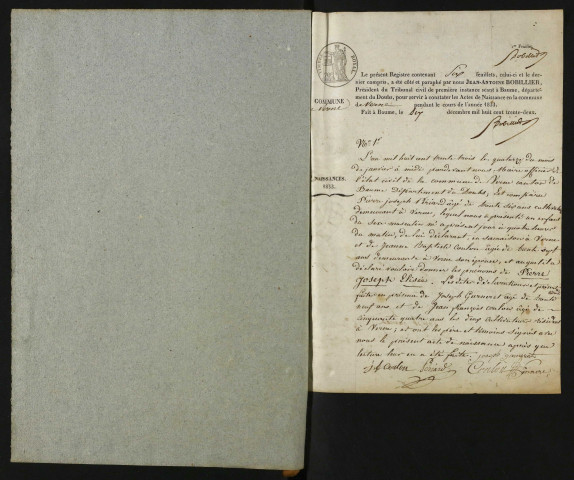 1er Feuillet
Le présent Registre contenant Six feuillets, celui-ci et le der-
nier compris, a été coté et paraphé par nous JEAN-ANTOINE BOBILLIER,
Président du Tribunal civil de première instance séant à Baume, départe-
ment du Doubs, pour servir à constater les Actes de Naissance en la commune
de Verne pendant le cours de l'année 1833.
Fait à Baume, le dix décembre mil huit cent trente-deux.
COMMUNE
de Verne
NAISSANCES.
1833.
No. 1er
L'an mil huit cent trente trois le quatorze du mois
de janvier à midi pardevant nous Maire officier de
l'état civil de la commune de Verne canton de
Baume Département du Doubs, est comparu
Pierre joseph âgé de trente six ans cultivateur
demeurant à Verne, lequel nous a présenté un enfant
du sexe masculin né a présent jour à quatre heures
du matin, de lui déclarant, domicilié à Verne
et de Jeanne Baptiste Coulon âgée de trente sept
ans demeurante à Verne son épouse, et auquel il a
déclaré vouloir donner les prénoms de Pierre
Joseph Elisée. Les dites déclarations et présentation
faites en présence de Joseph âgé de trente
neuf ans et de Jean françois coulon âgé de
cinquante quatre ans les deux cultivateurs résidents
à Verne; et ont les père et témoins signé avec
nous le présent acte de naissance après que
lecture leur en a été faite.
j f Coulon